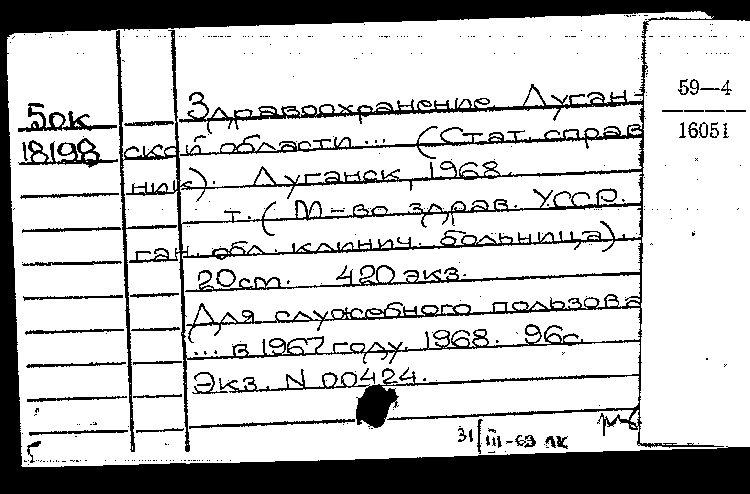 59—4
16051
5ок
18198
Здравоохранение Луган-
ской области... (Стат. справ
ник). Луганск, 1968.
т. (М-во здрав. УССР.
ган. обл. клинич. больница).
20 cm. 420 экз.
Для служебного пользова
... в 1967 году. 1968. 96с.
Экз. N 00424.
31/III-69 ЛК